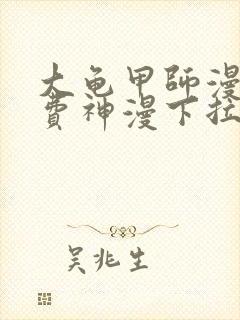 大龟甲師漫
費神漫下拉
吴兆生